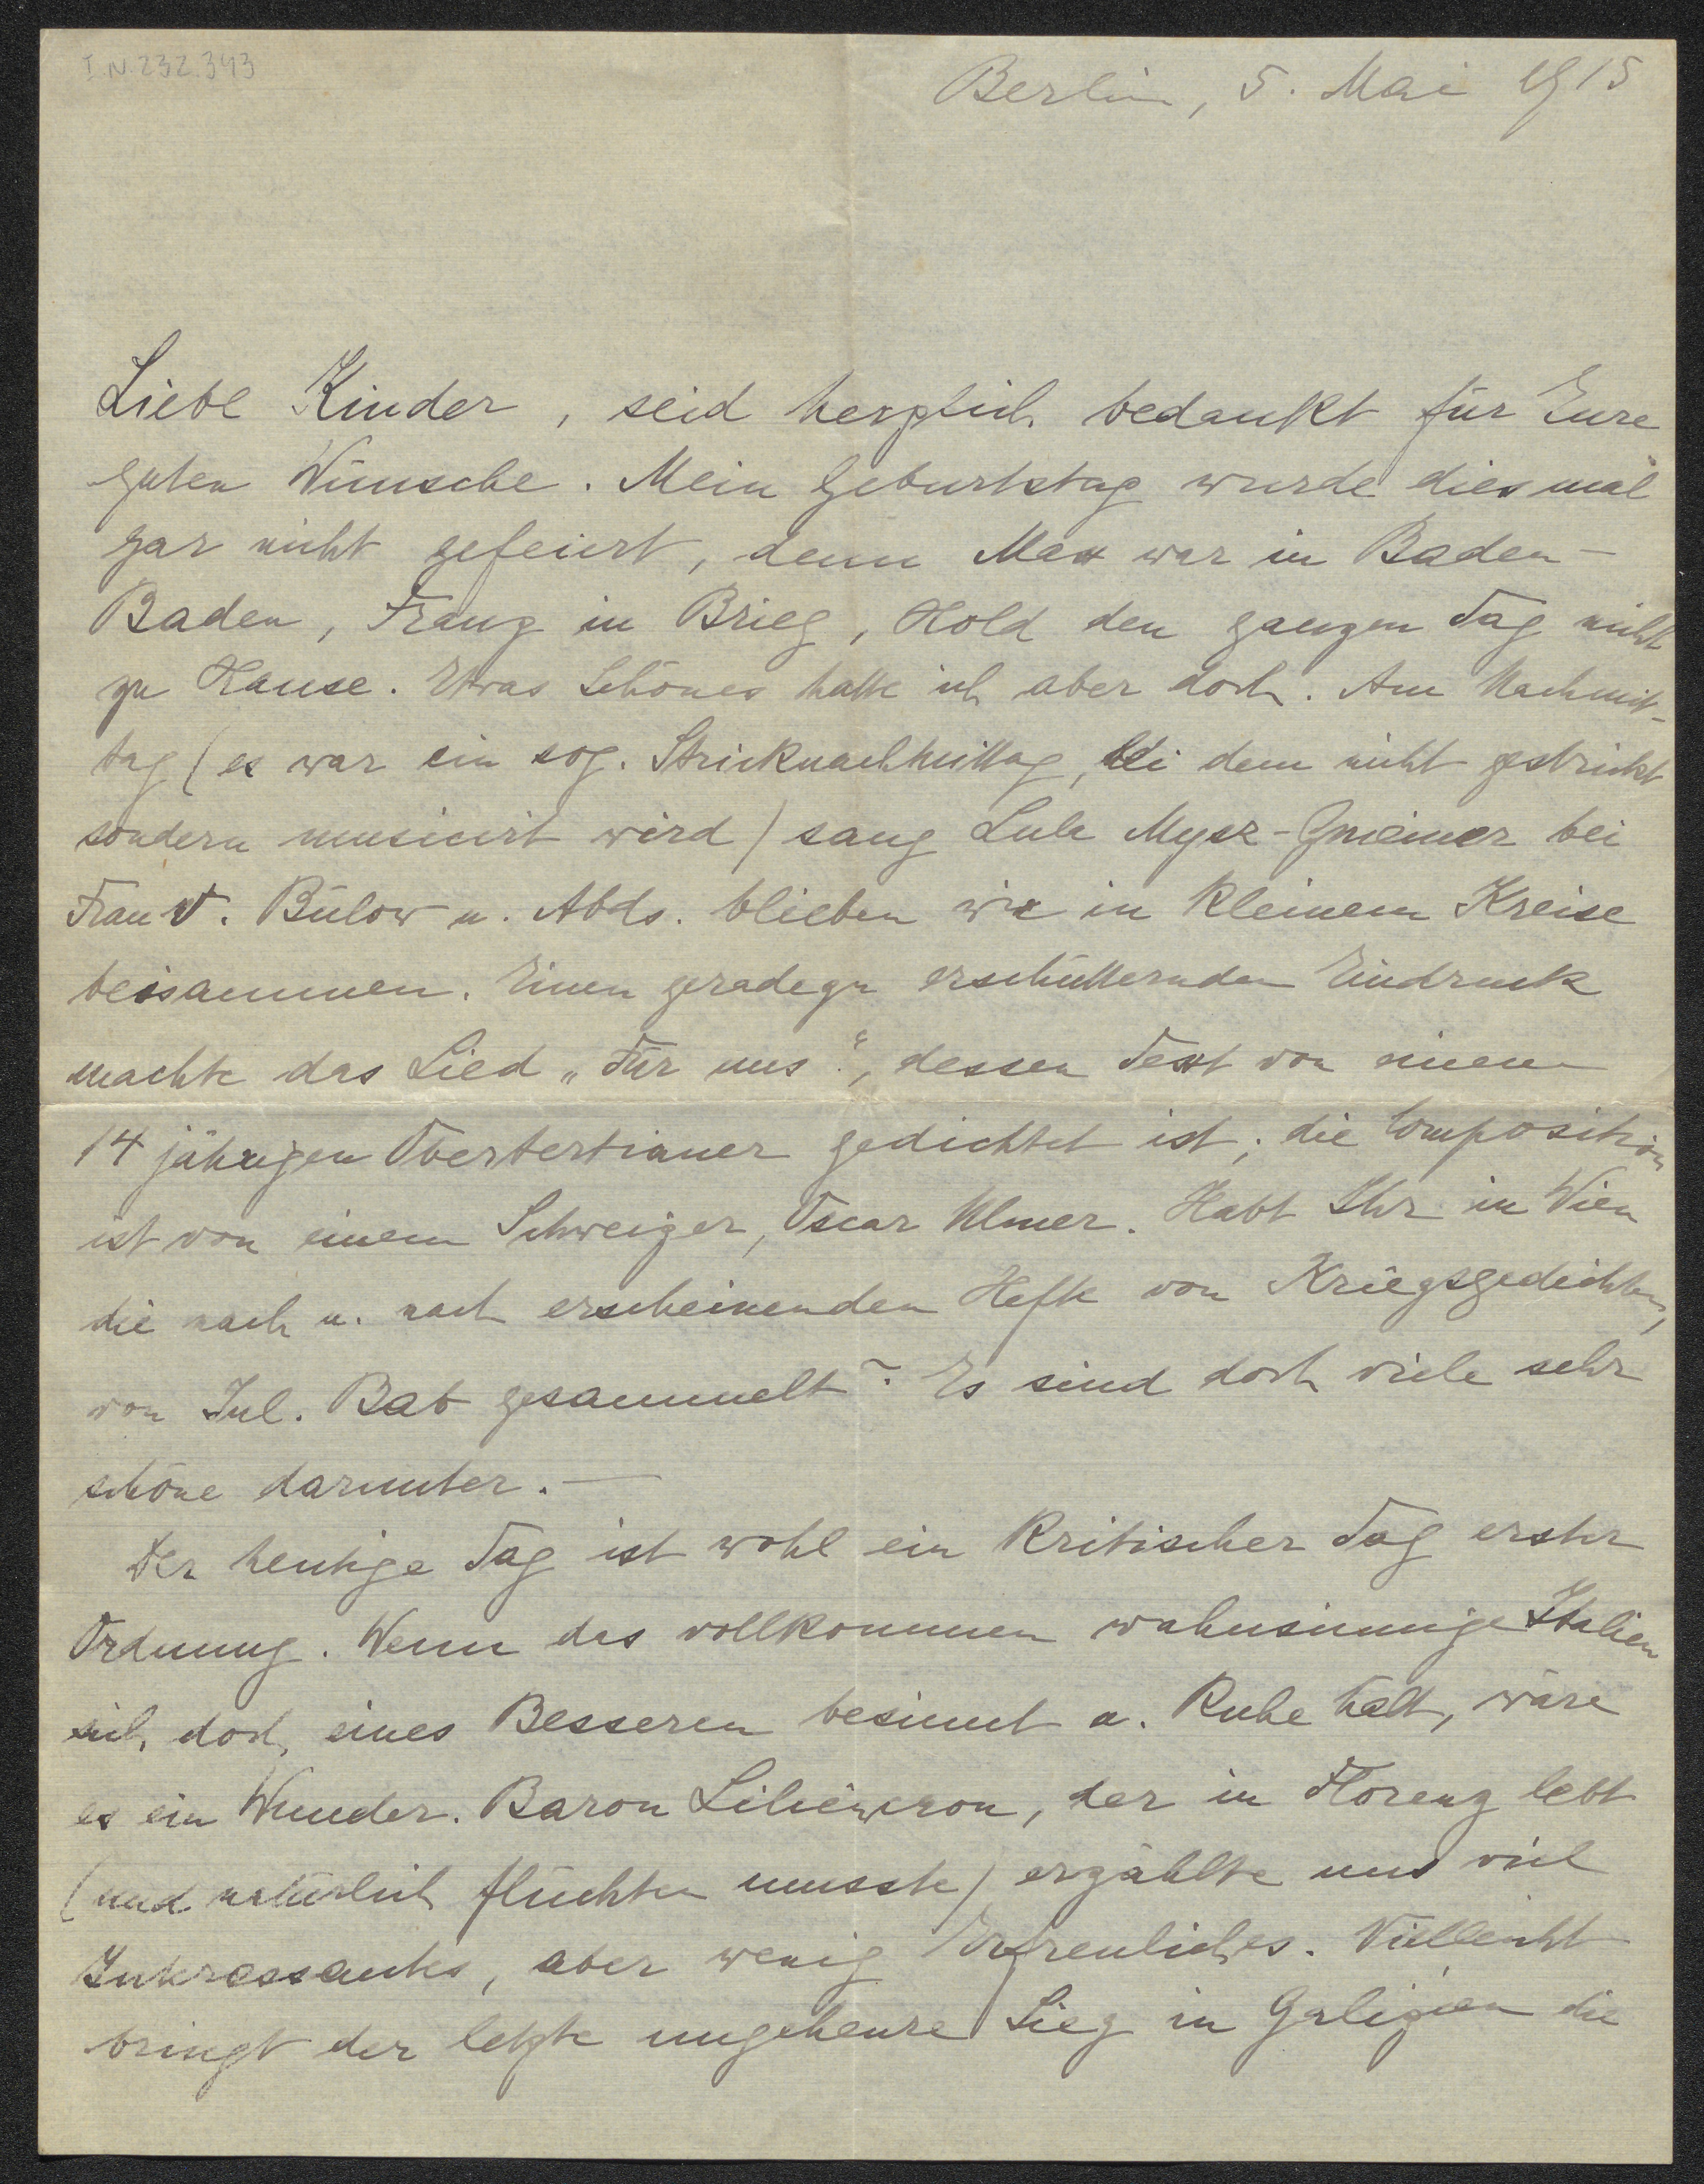 I.N. 232.343
Berlin, 5. Mai 1915
Liebe Kinder, seid herzlich bedankt für Eure
guten Wünsche. Mein Geburtstag wurde diesmal
gar nicht gefeiert, denn Max war in Baden-
Baden, Franz in Brieg, Hold den ganzen Tag nicht
zu Hause. Etwas Schönes hatte ich aber doch. Am Nachmit-
tag (es war ein sog. Stricknachmittag, bei dem nicht gestrickt
sondern musicirt wird) sang Lula Mysz-Gmeiner bei
Frau v. Bülow u. Abds. blieben wir in kleinem Kreise
beisammen. Einen geradezu erschütternden Eindruck
machte das Lied „Für uns“, dessen Text von einem
14 jährigen Obertertianer gedichtet ist; die Composition
ist von einem Schweizer, Oscar Ulmer. Habt Ihr in Wien
die nach u. nach erscheinenden Hefte von Kriegsgedichten,
von Jul. Bab gesammelt? Es sind doch viele sehr
schöne darunter. —
Der heutige Tag ist wohl ein kritischer Tag erster
Ordnung. Wenn das vollkommen wahnsinnige Italien
sich doch eines Besseren besinnt u. Ruhe hält, wäre
es ein Wunder. Baron Liliencron, der in Florenz lebt
(und natürlich flüchten musste) erzählte uns viel
Interessantes, aber wenig Erfreuliches. Vielleicht
bringt der letzte ungeheure Sieg in Galizien die